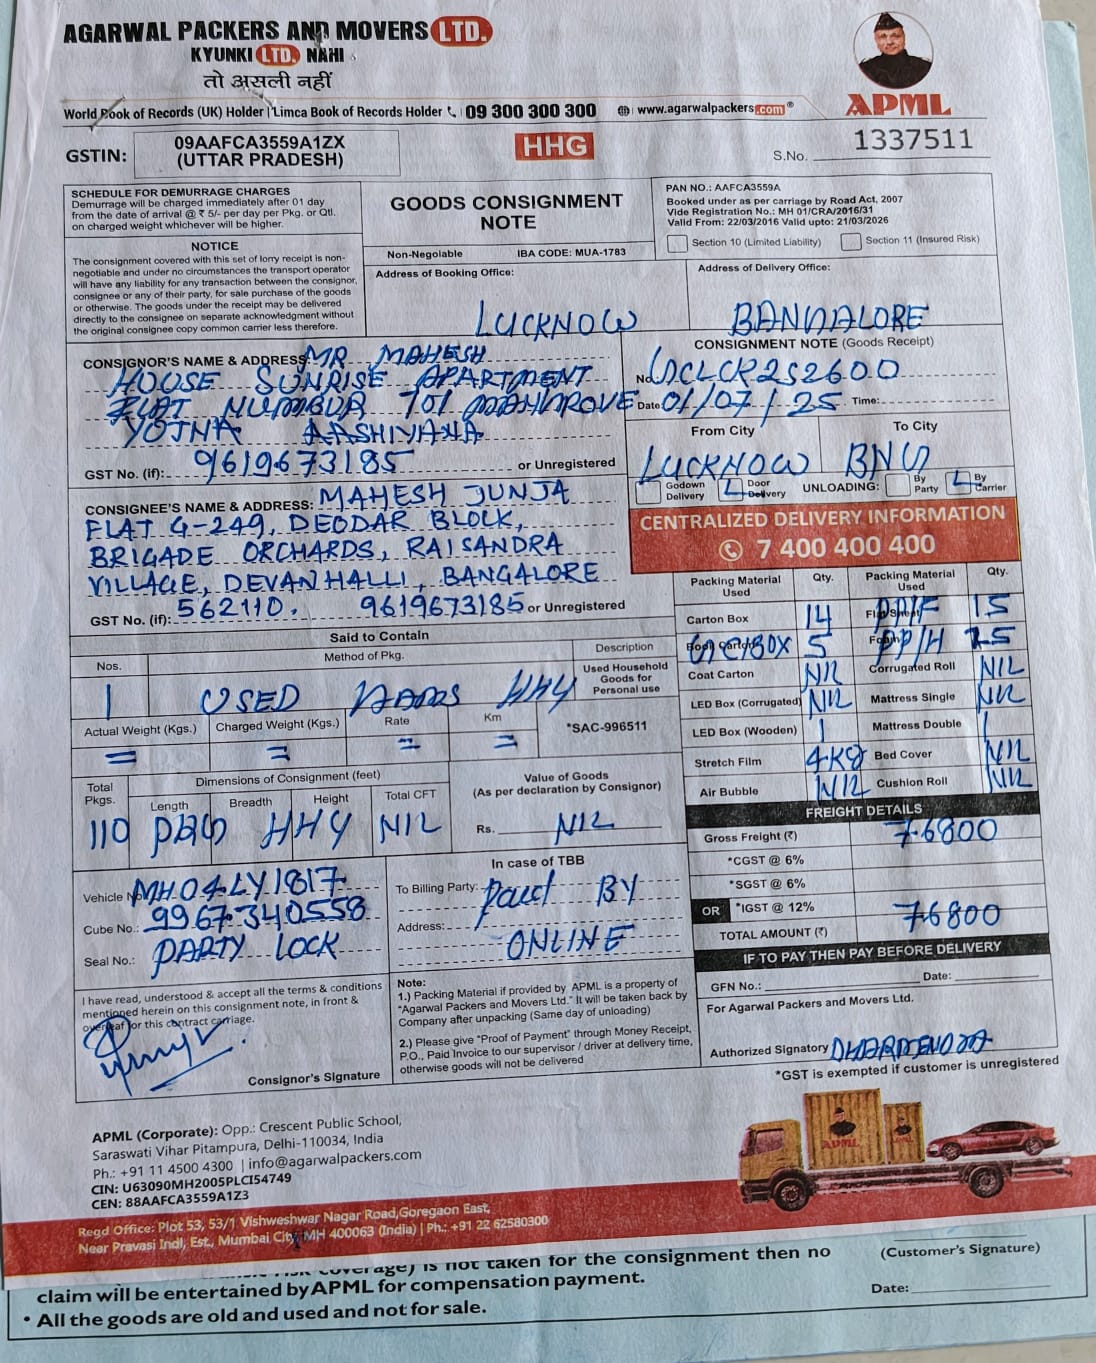 AGARWAL PACKERS AND MOVERS LTD.
KYUNKI LTD. NAHI
तो असली नहीं
World Book of Records (UK) Holder | Limca Book of Records Holder 09 300 300 300 www.agarwalpackers.com®
APML
GSTIN: 09AAFCA3559A1ZX
(UTTAR PRADESH)
HHG
S.No. 1337511
SCHEDULE FOR DEMURRAGE CHARGES
Demurrage will be charged immediately after 01 day
from the date of arrival @ ₹ 5/- per day per Pkg. or Qtl.
on charged weight whichever will be higher.
NOTICE
The consignment covered with this set of lorry receipt is non-
negotiable and under no circumstances the transport operator
will have any liability for any transaction between the consignor,
consignee or any of their party, for sale purchase of the goods
or otherwise. The goods under the receipt may be delivered
directly to the consignee on separate acknowledgment without
the original consignee copy common carrier less therefore.
GOODS CONSIGNMENT
NOTE
Non-Negoiable IBA CODE: MUA-1783
PAN NO.: AAFCA3559A
Booked under as per carriage by Road Act, 2007
Vide Registration No.: MH 01/CRA/2016/31
Valid From: 22/03/2016 Valid upto: 21/03/2026
Section 10 (Limited Liability) Section 11 (Insured Risk)
Address of Booking Office:
LUCKNOW
Address of Delivery Office:
BANGALORE
CONSIGNOR'S NAME & ADDRESS MR MAHESH
HOUSE SUNRISE APARTMENT
FLAT NUMBUR 701 MANGROVE
YOJNA AASHIYANA
GST No. (if): 9619673185 or Unregistered
CONSIGNMENT NOTE (Goods Receipt)
No
Date 01/07/25 Time:
From City To City
LUCKNOW BNG
Godown Delivery Door Delivery UNLOADING: By Party By Carrier
CONSIGNEE'S NAME & ADDRESS: MAHESH JUNJA
FLAT G-249, DEODAR BLOCK,
BRIGADE ORCHARDS, RAISANDRA
VILLAGE, DEVANHALLI, BANGALORE
GST No. (if): 562110. 9619673185 or Unregistered
CENTRALIZED DELIVERY INFORMATION
7 400 400 400
Said to Contain
Nos. Method of Pkg. Description
1 USED HHG
Used Household
Goods for
Personal use
Actual Weight (Kgs.) Charged Weight (Kgs.) Rate Km *SAC-996511
= = = =
Total Pkgs. Dimensions of Consignment (feet)
Length Breadth Height Total CFT
110 HHG NIL
Value of Goods
(As per declaration by Consignor)
Rs. NIL
Packing Material Used Qty. Packing Material Used Qty.
Carton Box 14 15
5 PP/H 15
Coat Carton NIL Corrugated Roll NIL
LED Box (Corrugated) NIL Mattress Single NIL
LED Box (Wooden) 1 Mattress Double 1
Stretch Film 4Kg Bed Cover NIL
Air Bubble NIL Cushion Roll NIL
FREIGHT DETAILS
Gross Freight (₹) 76800
*CGST @ 6%
*SGST @ 6%
OR *IGST @ 12%
TOTAL AMOUNT (₹) 76800
IF TO PAY THEN PAY BEFORE DELIVERY
GFN No.: Date:
Vehicle No MH04LY1817
Cube No.: 9967340558
Seal No.: PARTY LOCK
In case of TBB
To Billing Party: Paid BY
Address:
ONLINE
I have read, understood & accept all the terms & conditions
mentioned herein on this consignment note, in front &
overleaf for this contract carriage.
Consignor's Signature
Note:
1.) Packing Material if provided by APML is a property of
"Agarwal Packers and Movers Ltd." It will be taken back by
Company after unpacking (Same day of unloading)
2.) Please give "Proof of Payment" through Money Receipt,
P.O., Paid Invoice to our supervisor / driver at delivery time,
otherwise goods will not be delivered
For Agarwal Packers and Movers Ltd.
Authorized Signatory
*GST is exempted if customer is unregistered
APML (Corporate): Opp.: Crescent Public School,
Saraswati Vihar Pitampura, Delhi-110034, India
Ph.: +91 11 4500 4300 | info@agarwalpackers.com
CIN: U63090MH2005PLCI54749
CEN: 88AAFCA3559A1Z3
APML
Regd Office: Plot 53, 53/1 Vishweshwar Nagar Road,Goregaon East,
Near Pravasi Indl, Est., Mumbai City MH 400063 (India) | Ph.: +91 22 62580300
coverage) is not taken for the consignment then no
claim will be entertained by APML for compensation payment.
• All the goods are old and used and not for sale.
(Customer's Signature)
Date: